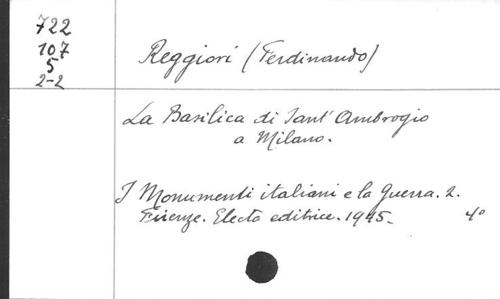 722
107
5
2-2
Reggiori (Ferdinando)
La Basilica di Sant' Ambrogio
a Milano.
I Monumenti italiani e la guerra. 2.
Firenze. Electa editrice. 1945. 4°